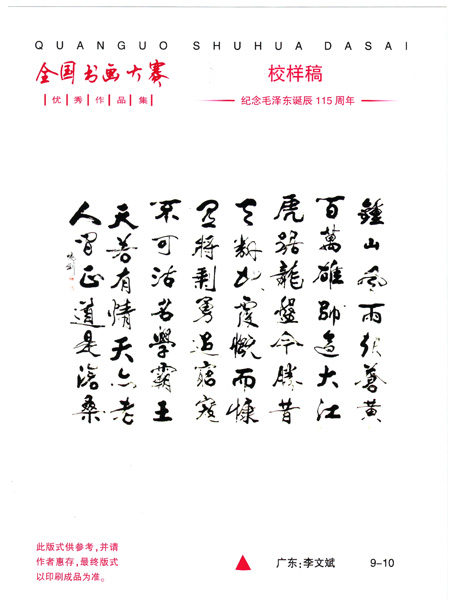 QUANGUO SHUHUA DASAI
全国书画大赛
优秀作品集
校样稿
纪念毛泽东诞辰115周年
鍾山風雨起蒼黄
百萬雄師過大江
虎踞龍盤今勝昔
天翻地覆慨而慷
宜將剩勇追窮寇
不可沽名學霸王
天若有情天亦老
人間正道是滄桑
此版式供参考,并请
作者惠存,最终版式
以印刷成品为准。
广东:李文斌
9-10